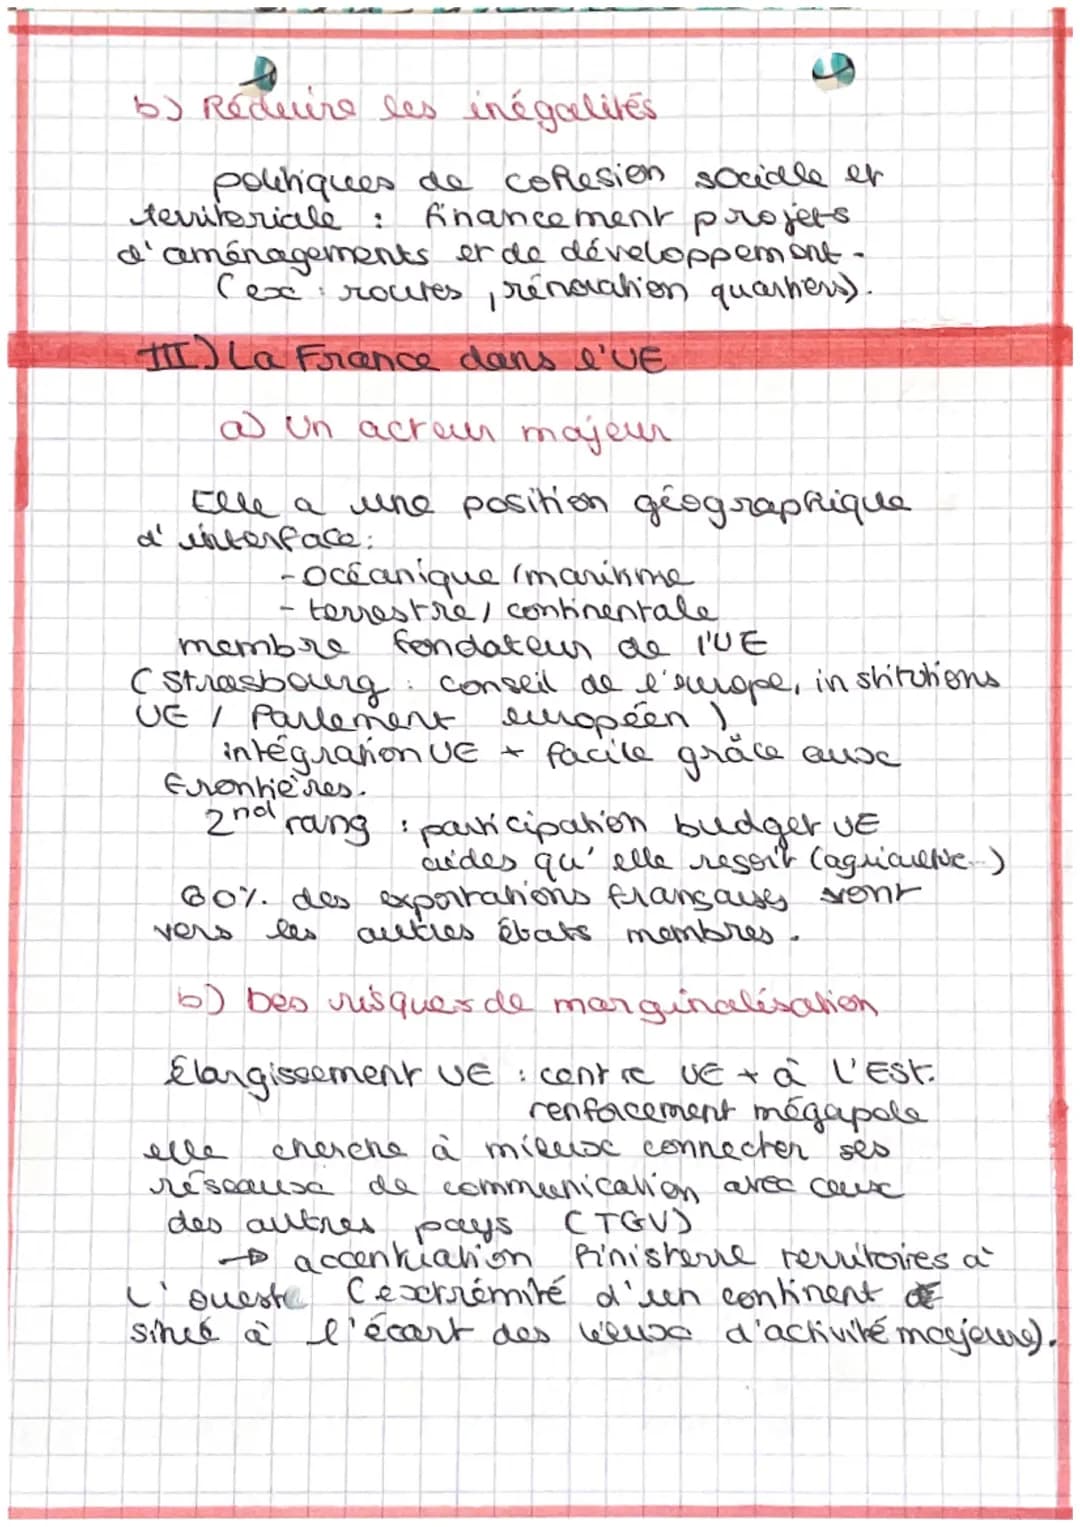 b) Réduire les inégalités
politiques de cohesion sociale et
territoriale : financement projets
d'aménagements et de développement.
(ex : routes, rénovation quartiers).
III) La France dans l'UE
a) Un acteur majeur
Elle a une position géographique
d'interface:
- océanique / maritime
- terrestre / continentale
membre fondateur de l'UE
(Strasbourg : conseil de l'europe, institutions
UE / Parlement européen)
intégration UE + facile grâce aux
frontières.
2nd rang : participation budget UE
aides qu'elle resoit (agriculture...)
60% des exportations françaises vont
vers les autres États membres.
b) Des risques de marginalisation
Élargissement UE : centre UE + à l'Est.
renforcement mégapole
elle cherche à mieux connecter ses
réseaux de communication avec ceux
des autres pays (TGV)
→ accentuation finisterre territoires à
L'ouest (extrémité d'un continent
situé à l'écart des lieux d'activité majeure).